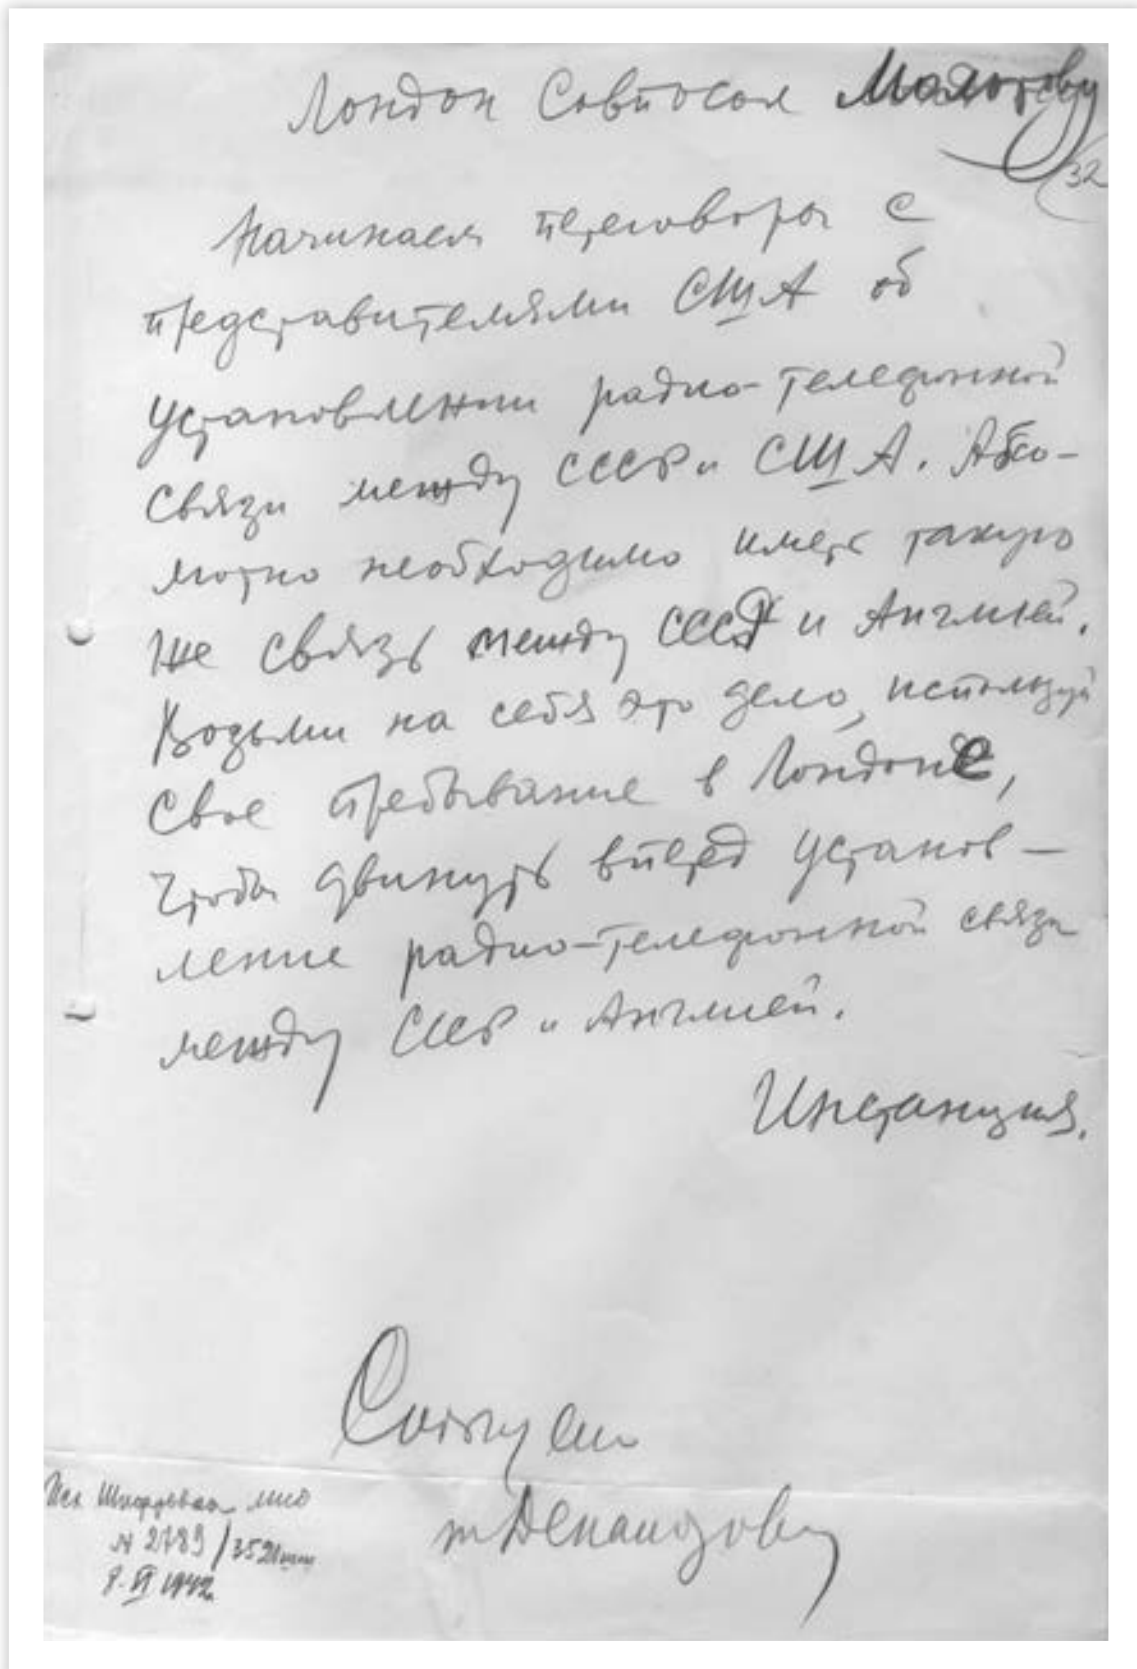 Лондон Совпосол Молотову
32
Начинаем переговоры с
представителями США об
установлении радио-телефонной
связи между СССР и США. Абсо-
лютно необходимо иметь такую
же связь между СССР и Англией.
Возьми на себя это дело, используй
свое пребывание в Лондоне,
чтобы двинуть вперед установ-
ление радио-телефонной связи
между СССР и Англией.
Инстанция.
т Деканозову
Исх Шифровка
N 2789/352
9.VI 1942